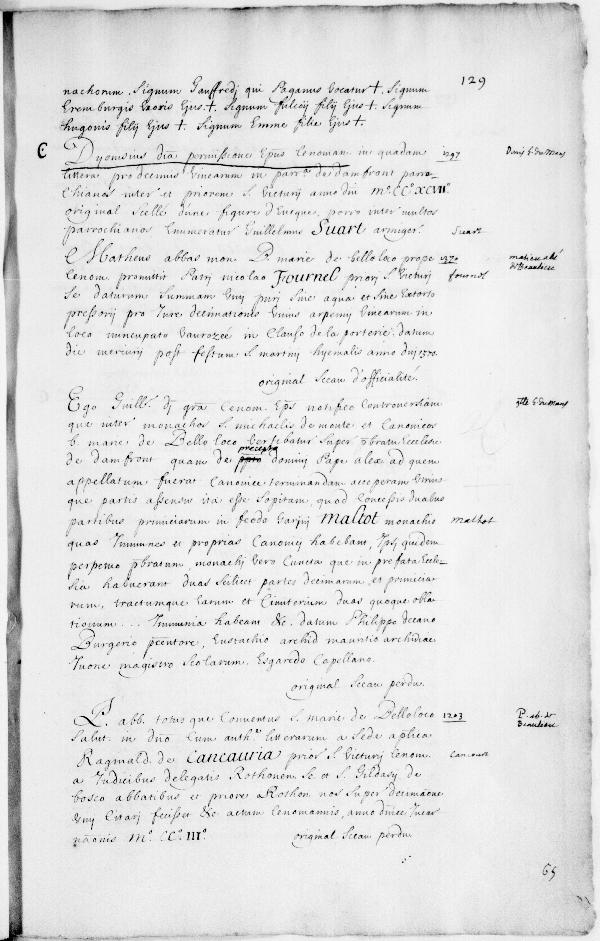 129
nachorum. Signum Gauffredj qui Paganus Vocatur †. Signum
Eremburgis Uxoris Ejus. †. Signum fulcij filij Ejus †. Signum
hugonis filij Ejus †. Signum Emme filie Ejus †.
C Dyonisius dia permissione Epus Cenoman. in quadam 1297 Denis E. du Mans
littera pro decimis Vinearum in parr.a de damfront parro-
chianos inter et priorem S. Victurij anno dni m.o CC.o XCVII.o
original Scellé d'une figure d'Eveque. porro inter multos
parrochianos Enumeratur Guillelmus Suart armiger. Suart
Matheus abbas mon. B. marie de bello loco prope 1370 matieu abé de Beaulieu
Cenom. promittit Patri nicolao Fournel priorj S. Victurij fournel
Se daturum Summam Vnij purj Sine aqua et Sine Extorto
pressorij pro Jure decimationis Unius arpenij Vinearum in
loco nuncupato Vaurozeé in Clauso de la porterie. datum
die mercurij post festum S. martinj hyemalis anno dnj 1370.
original Sceau d'officialité.
Ego Guill.s dj grã Cenom. Eps notifico Controversiam Glle E. du Mans
que inter monachos S. michaelis de monte et Canonicos
b. marie de Bello loco Versebatur Super pbratu Ecclesie
de damfront quam de precepto dominj Pape alex ad quem
appellatum fuerat Canonice terminandam acceperam Utrius
que partis assensus ita esse Sopitam quod Concessis duabus
partibus primiciarum in feodo Varinj Maltot monachio Malhot
quas Immunes et proprias Canonicj habebant, Ipsj quidem
perpetuo pbratum, monachj Vero Cuncta que in prefata Eccle-
sia habuerant duas Scilicet partes decimarum, et primicia-
rum, tractumque Earum et Cimiterium duas quoque obla-
tionum . . . Immunia habeant &c. datum Philippo decano
Burgerio pcentore, Eustachio archid. mauritio archidiac.
Juone magistro Scolarum. Esgaredo Capellano.
original Sceau perdu.
P. abb. totus que Conventus S. marie de Belloloco 1203 P. ab. de Beaulieu
Salut. in dno Cum auth.e litterarum a Sede aplica
Raginald. de Cancauria prior S. Victurij Cenom. Cancoure
a Judicibus delegatis Rothonen. Sc et S. Gildasij de
bosco abbatibus et priore Rothon nos Super decimatione
Vnij Citarj fecisset &c actum Cenomannis, anno dnice Incar
nãonis M.o CC.o III.o original Sceau perdu
65